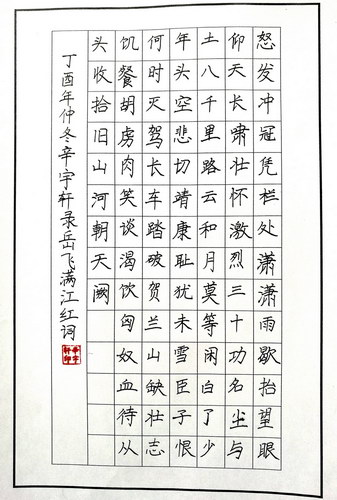 怒发冲冠凭栏处潇潇雨歇抬望眼
仰天长啸壮怀激烈三十功名尘与
土八千里路云和月莫等闲白了少
年头空悲切靖康耻犹未雪臣子恨
何时灭驾长车踏破贺兰山缺壮志
饥餐胡虏肉笑谈渴饮匈奴血待从
头收拾旧山河朝天阙
丁酉年仲冬辛宇轩录岳飞满江红词
辛宇
轩印